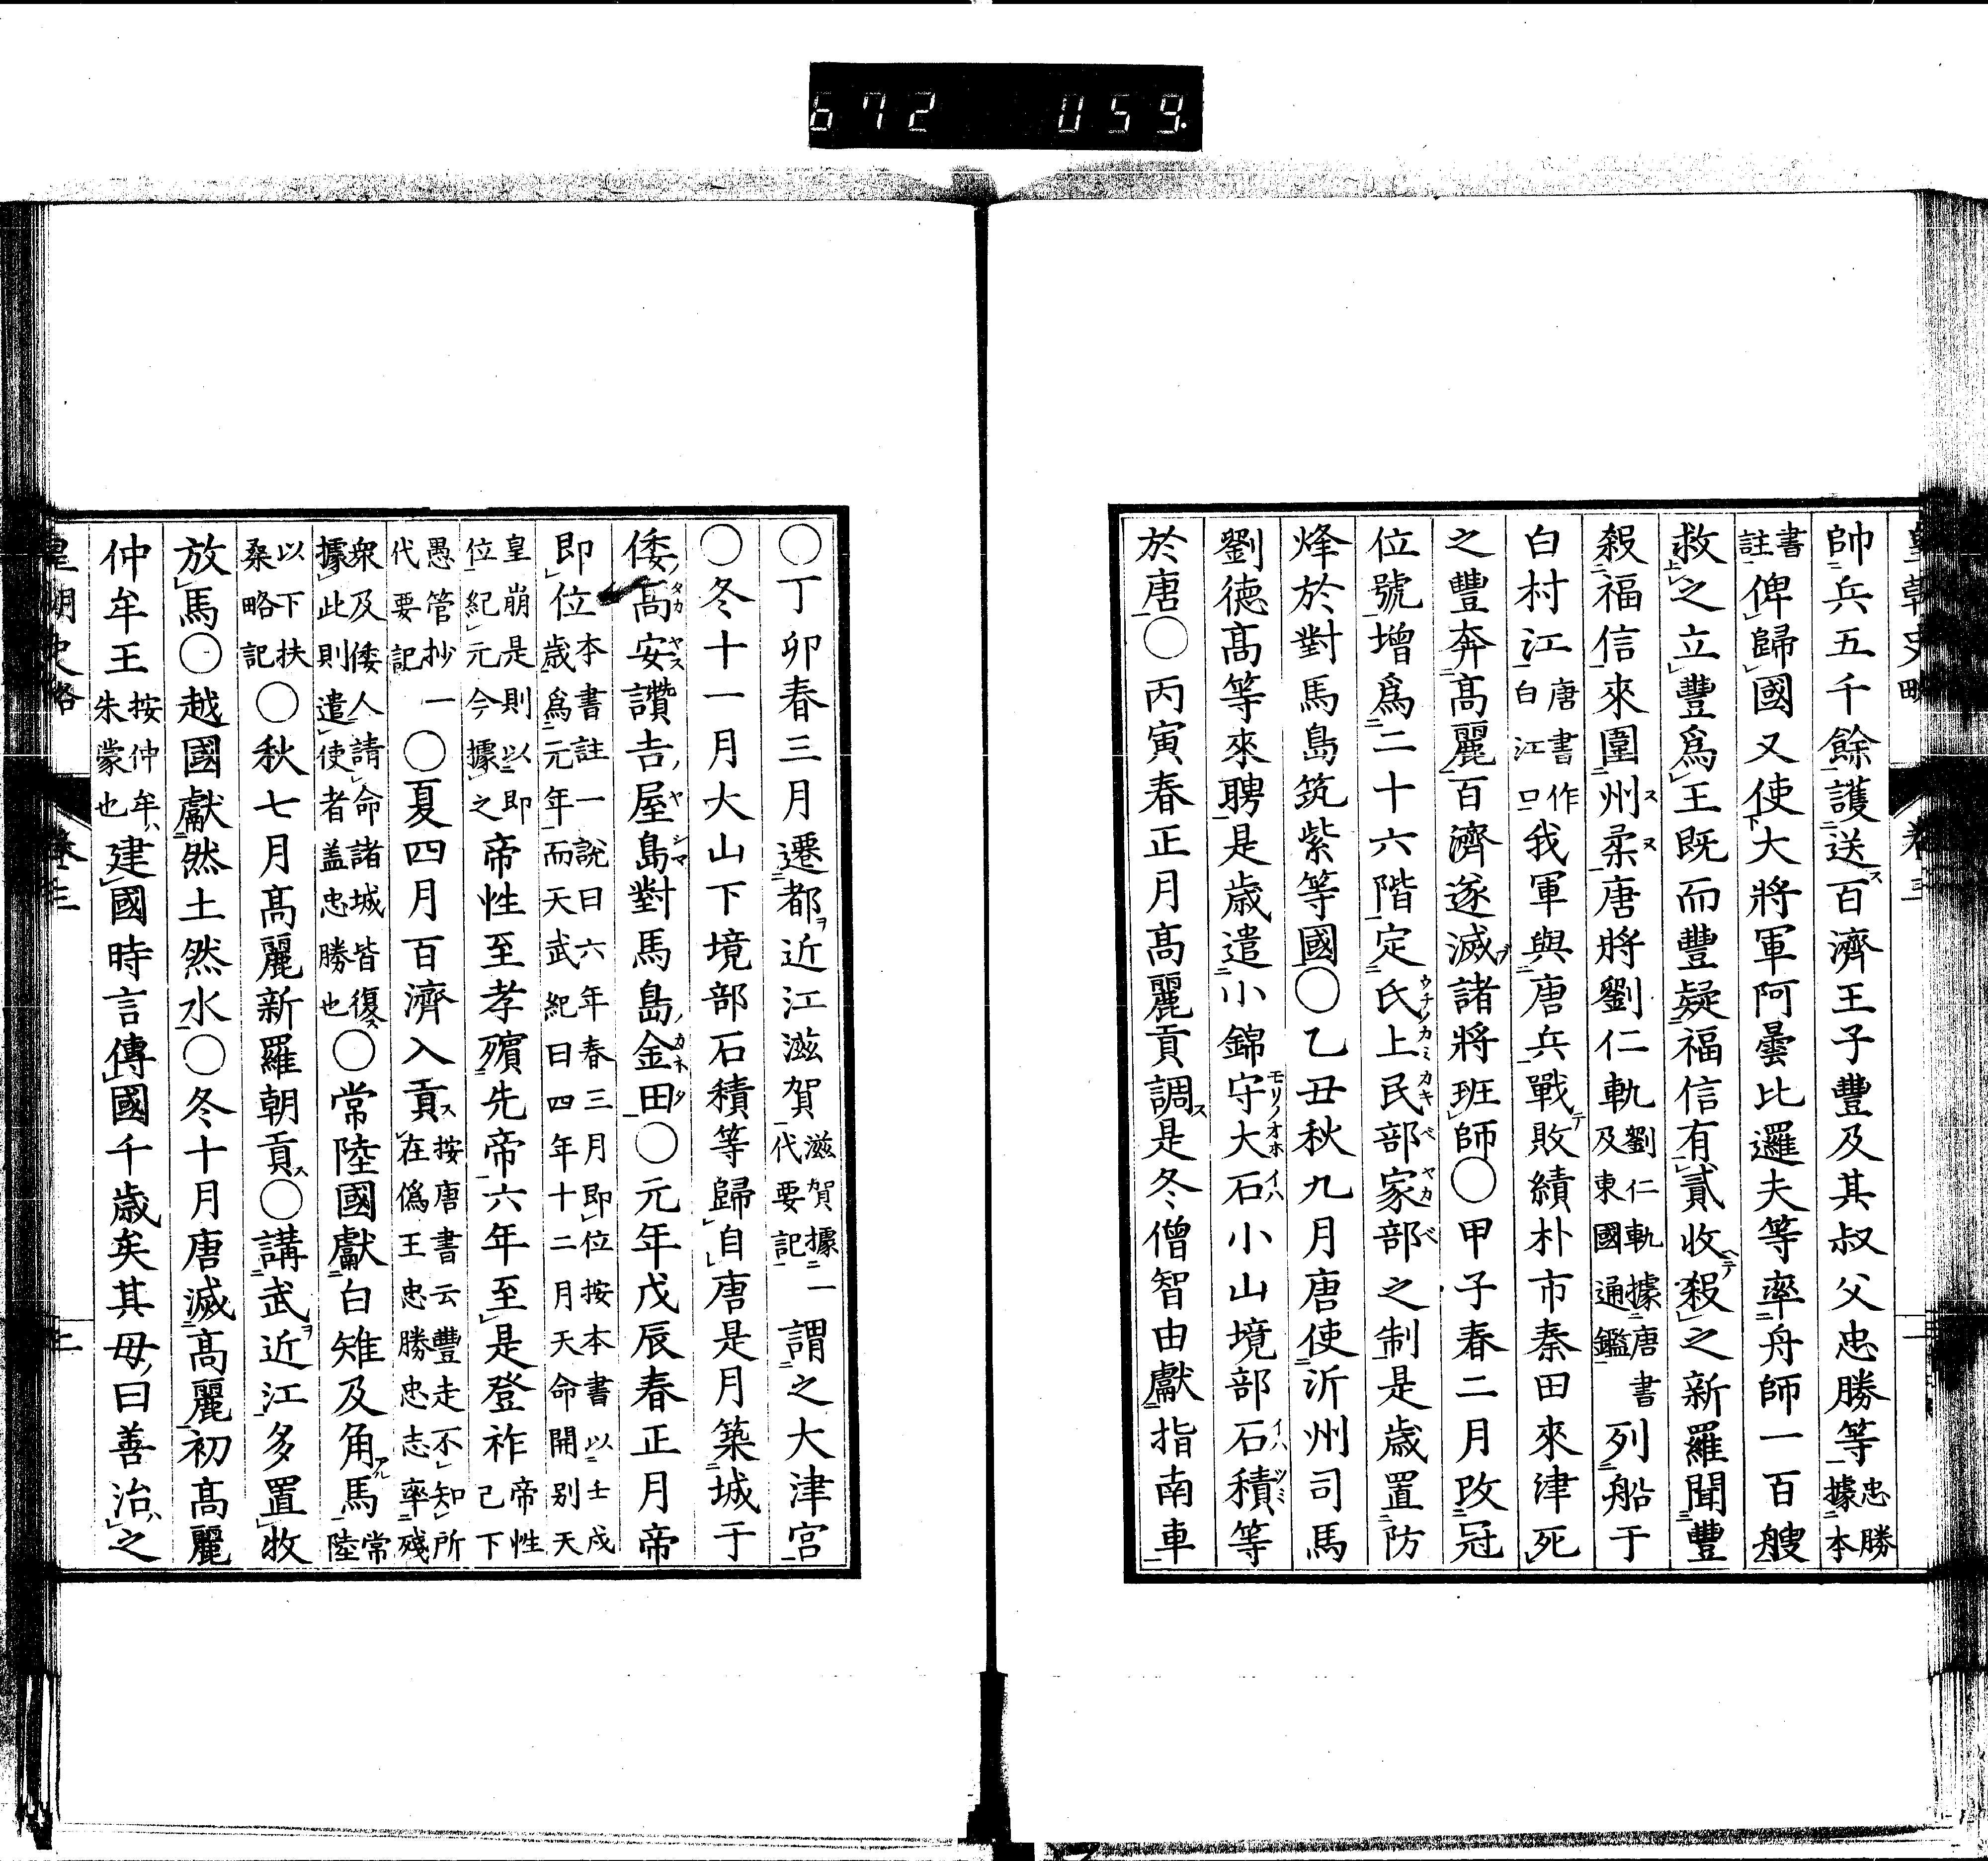 672 059.
皇朝史略 卷三 二
帥兵五千餘護送ス百濟王子豐及其叔父忠勝等忠勝據本
書註俾歸國又使大將軍阿曇比邏夫等率舟師一百艘
救之立豐爲王既而豐疑福信有貳收テ殺之新羅聞豐
殺福信來圍州ス柔ヌ唐將劉仁軌劉仁軌據唐書及東國通鑑列船于
白村江唐書作白江口我軍與唐兵戰テ敗績朴市秦田來津死
之豐奔高麗百濟遂滅ブ諸將班師○甲子春二月改冠
位號增爲二十六階定氏ウチノ上カミ民カキ部ベ家ヤカ部ベ之制是歲置防
烽於對馬島筑紫等國○乙丑秋九月唐使沂州司馬
劉德高等來聘是歲遣小錦守モリノ大オホ石イハ小山境部石イハ積ツミ等
於唐○丙寅春正月高麗貢調ス是冬僧智由獻指南車
○丁卯春三月遷都ヲ近江滋賀滋賀據一代要記謂之大津宮
○冬十一月大山下境部石積等歸自唐是月築城于
倭ノ高タカ安ヤス讚吉ノ屋ヤ島シマ對馬島ノ金カネ田タ○元年戊辰春正月帝
即位本書註一說曰六年春三月即位按本書以壬戌歲爲元年而天武紀曰四年十二月天命開別天
皇崩是則以即位紀元今據之帝性至孝殯先帝六年至是登祚帝性已下
愚管抄一代要記○夏四月百濟入貢ス按唐書云豐走不知所在僞王忠勝忠志率殘
衆及倭人請命諸城皆復ス據此則遣使者盖忠勝也○常陸國獻白雉及角アル馬常陸
以下扶桑略記○秋七月高麗新羅朝貢ス○講武ヲ近江多置牧
放馬○越國獻然土然水○冬十月唐滅高麗初高麗
仲牟王按仲牟ハ朱蒙也建國時言傳國千歲矣其母ノ曰善治ハ之
皇朝史略 卷三 二